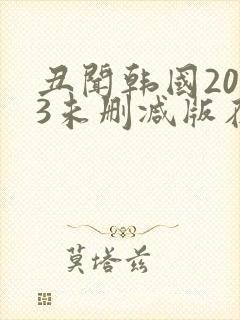 丑聞韩國20
3未删减版在
莫塔兹